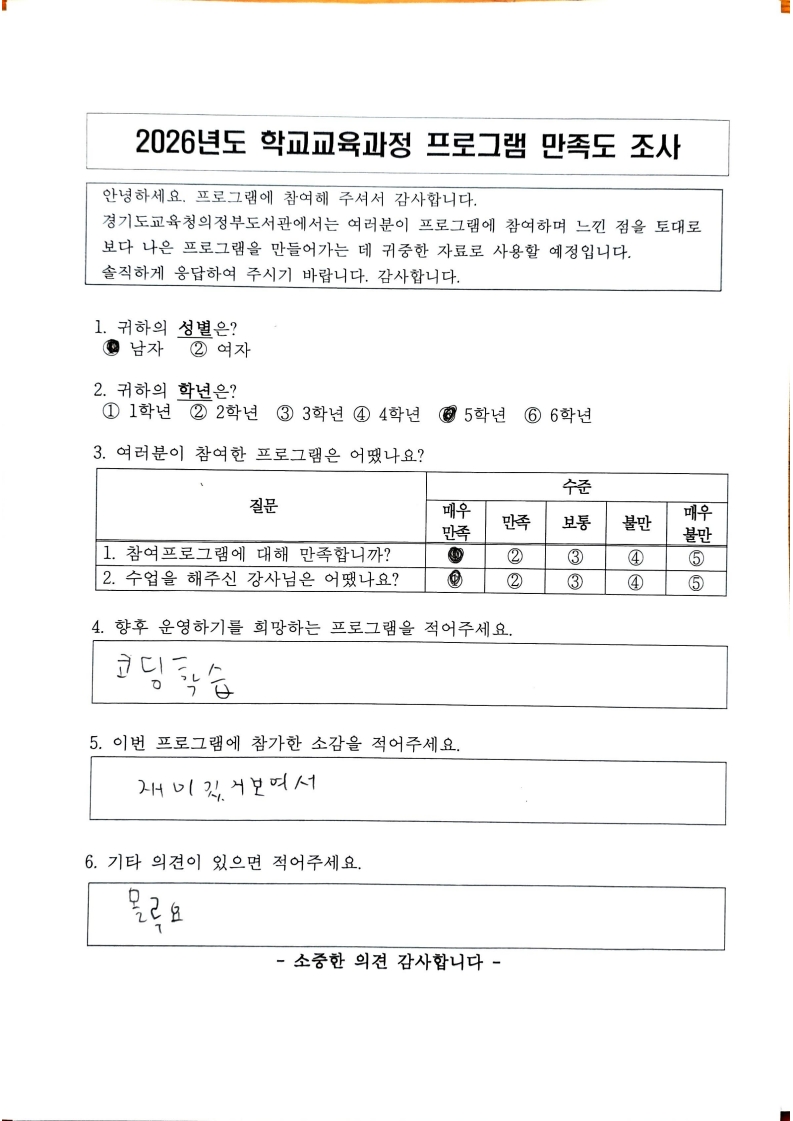 2026년도 학교교육과정 프로그램 만족도 조사
안녕하세요. 프로그램에 참여해 주셔서 감사합니다.
경기도교육청의정부도서관에서는 여러분이 프로그램에 참여하며 느낀 점을 토대로
보다 나은 프로그램을 만들어가는 데 귀중한 자료로 사용할 예정입니다.
솔직하게 응답하여 주시기 바랍니다. 감사합니다.
1. 귀하의 성별은?
남자 ② 여자
2. 귀하의 학년은?
① 1학년 ② 2학년 ③ 3학년 ④ 4학년 5학년 ⑥ 6학년
3. 여러분이 참여한 프로그램은 어땠나요?
질문 수준
매우 만족 만족 보통 불만 매우 불만
1. 참여프로그램에 대해 만족합니까? ② ③ ④ ⑤
2. 수업을 해주신 강사님은 어땠나요? ② ③ ④ ⑤
4. 향후 운영하기를 희망하는 프로그램을 적어주세요.
코딩 학습
5. 이번 프로그램에 참가한 소감을 적어주세요.
6. 기타 의견이 있으면 적어주세요.
- 소중한 의견 감사합니다 -